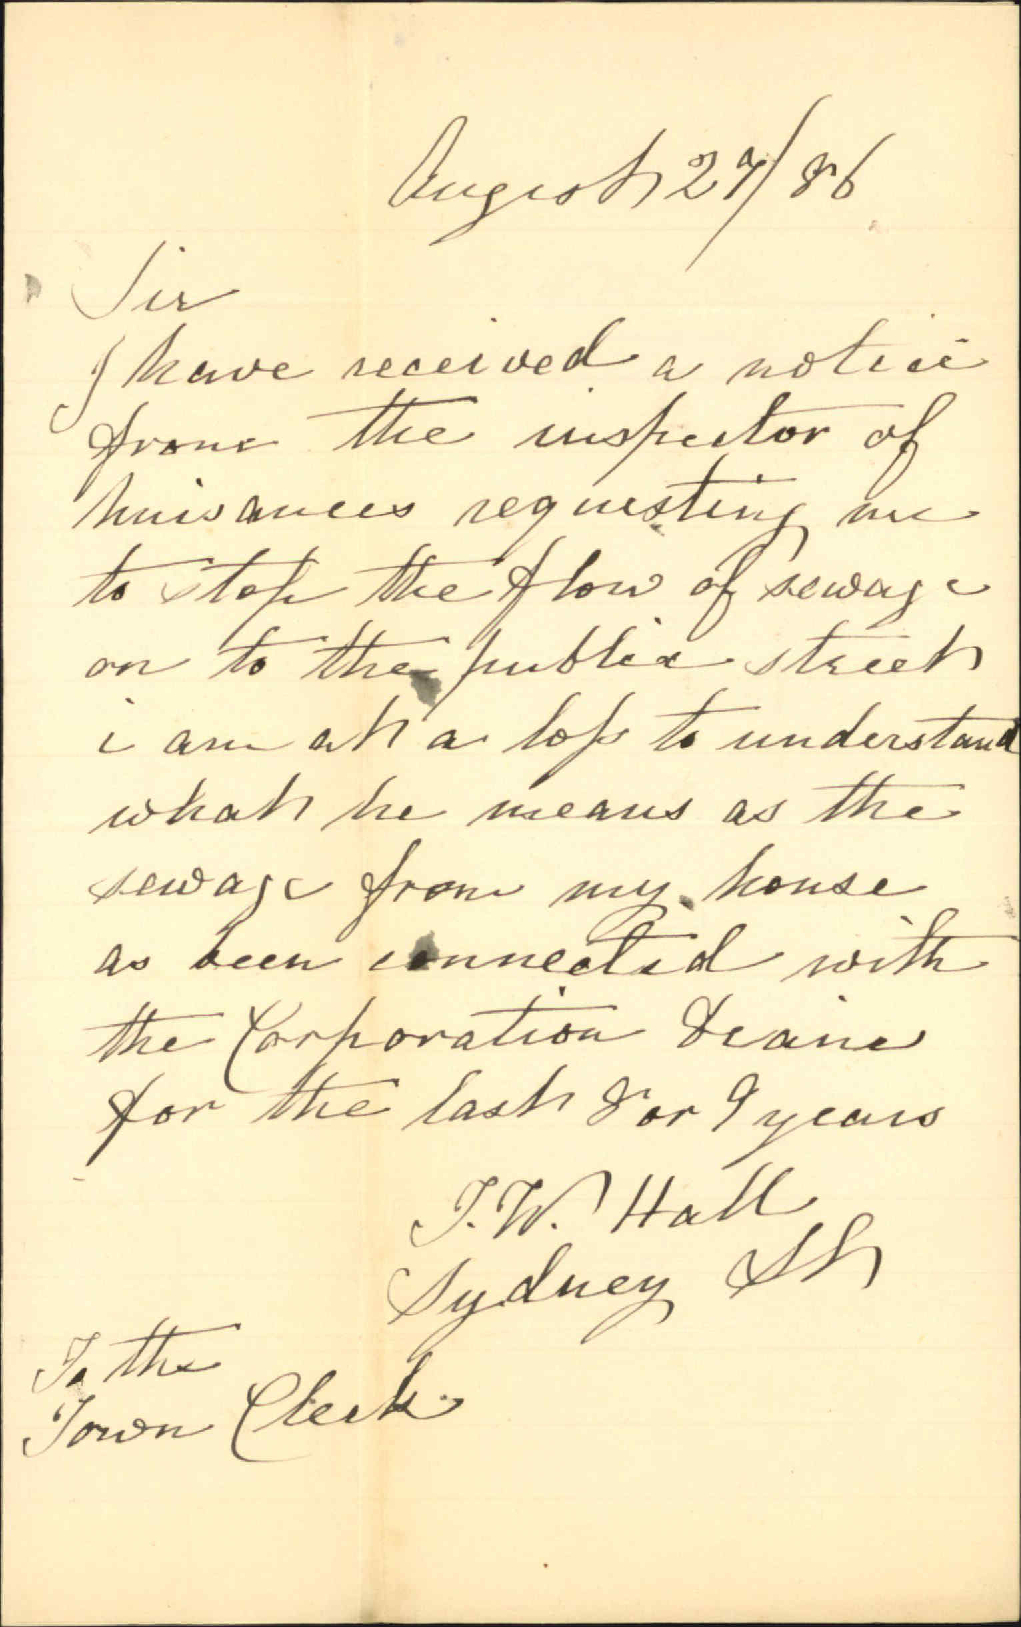 August 27/86
Sir
I have received a notice
from the inspector of
nuisances requesting me
to stop the flow of sewage
on to the public street
i am at a loss to understand
what he means as the
sewage from my house
as been connected with
the Corporation Draine
for the last 8 or 9 years
T.W. Hall
Sydney St
To the
Town Clerk